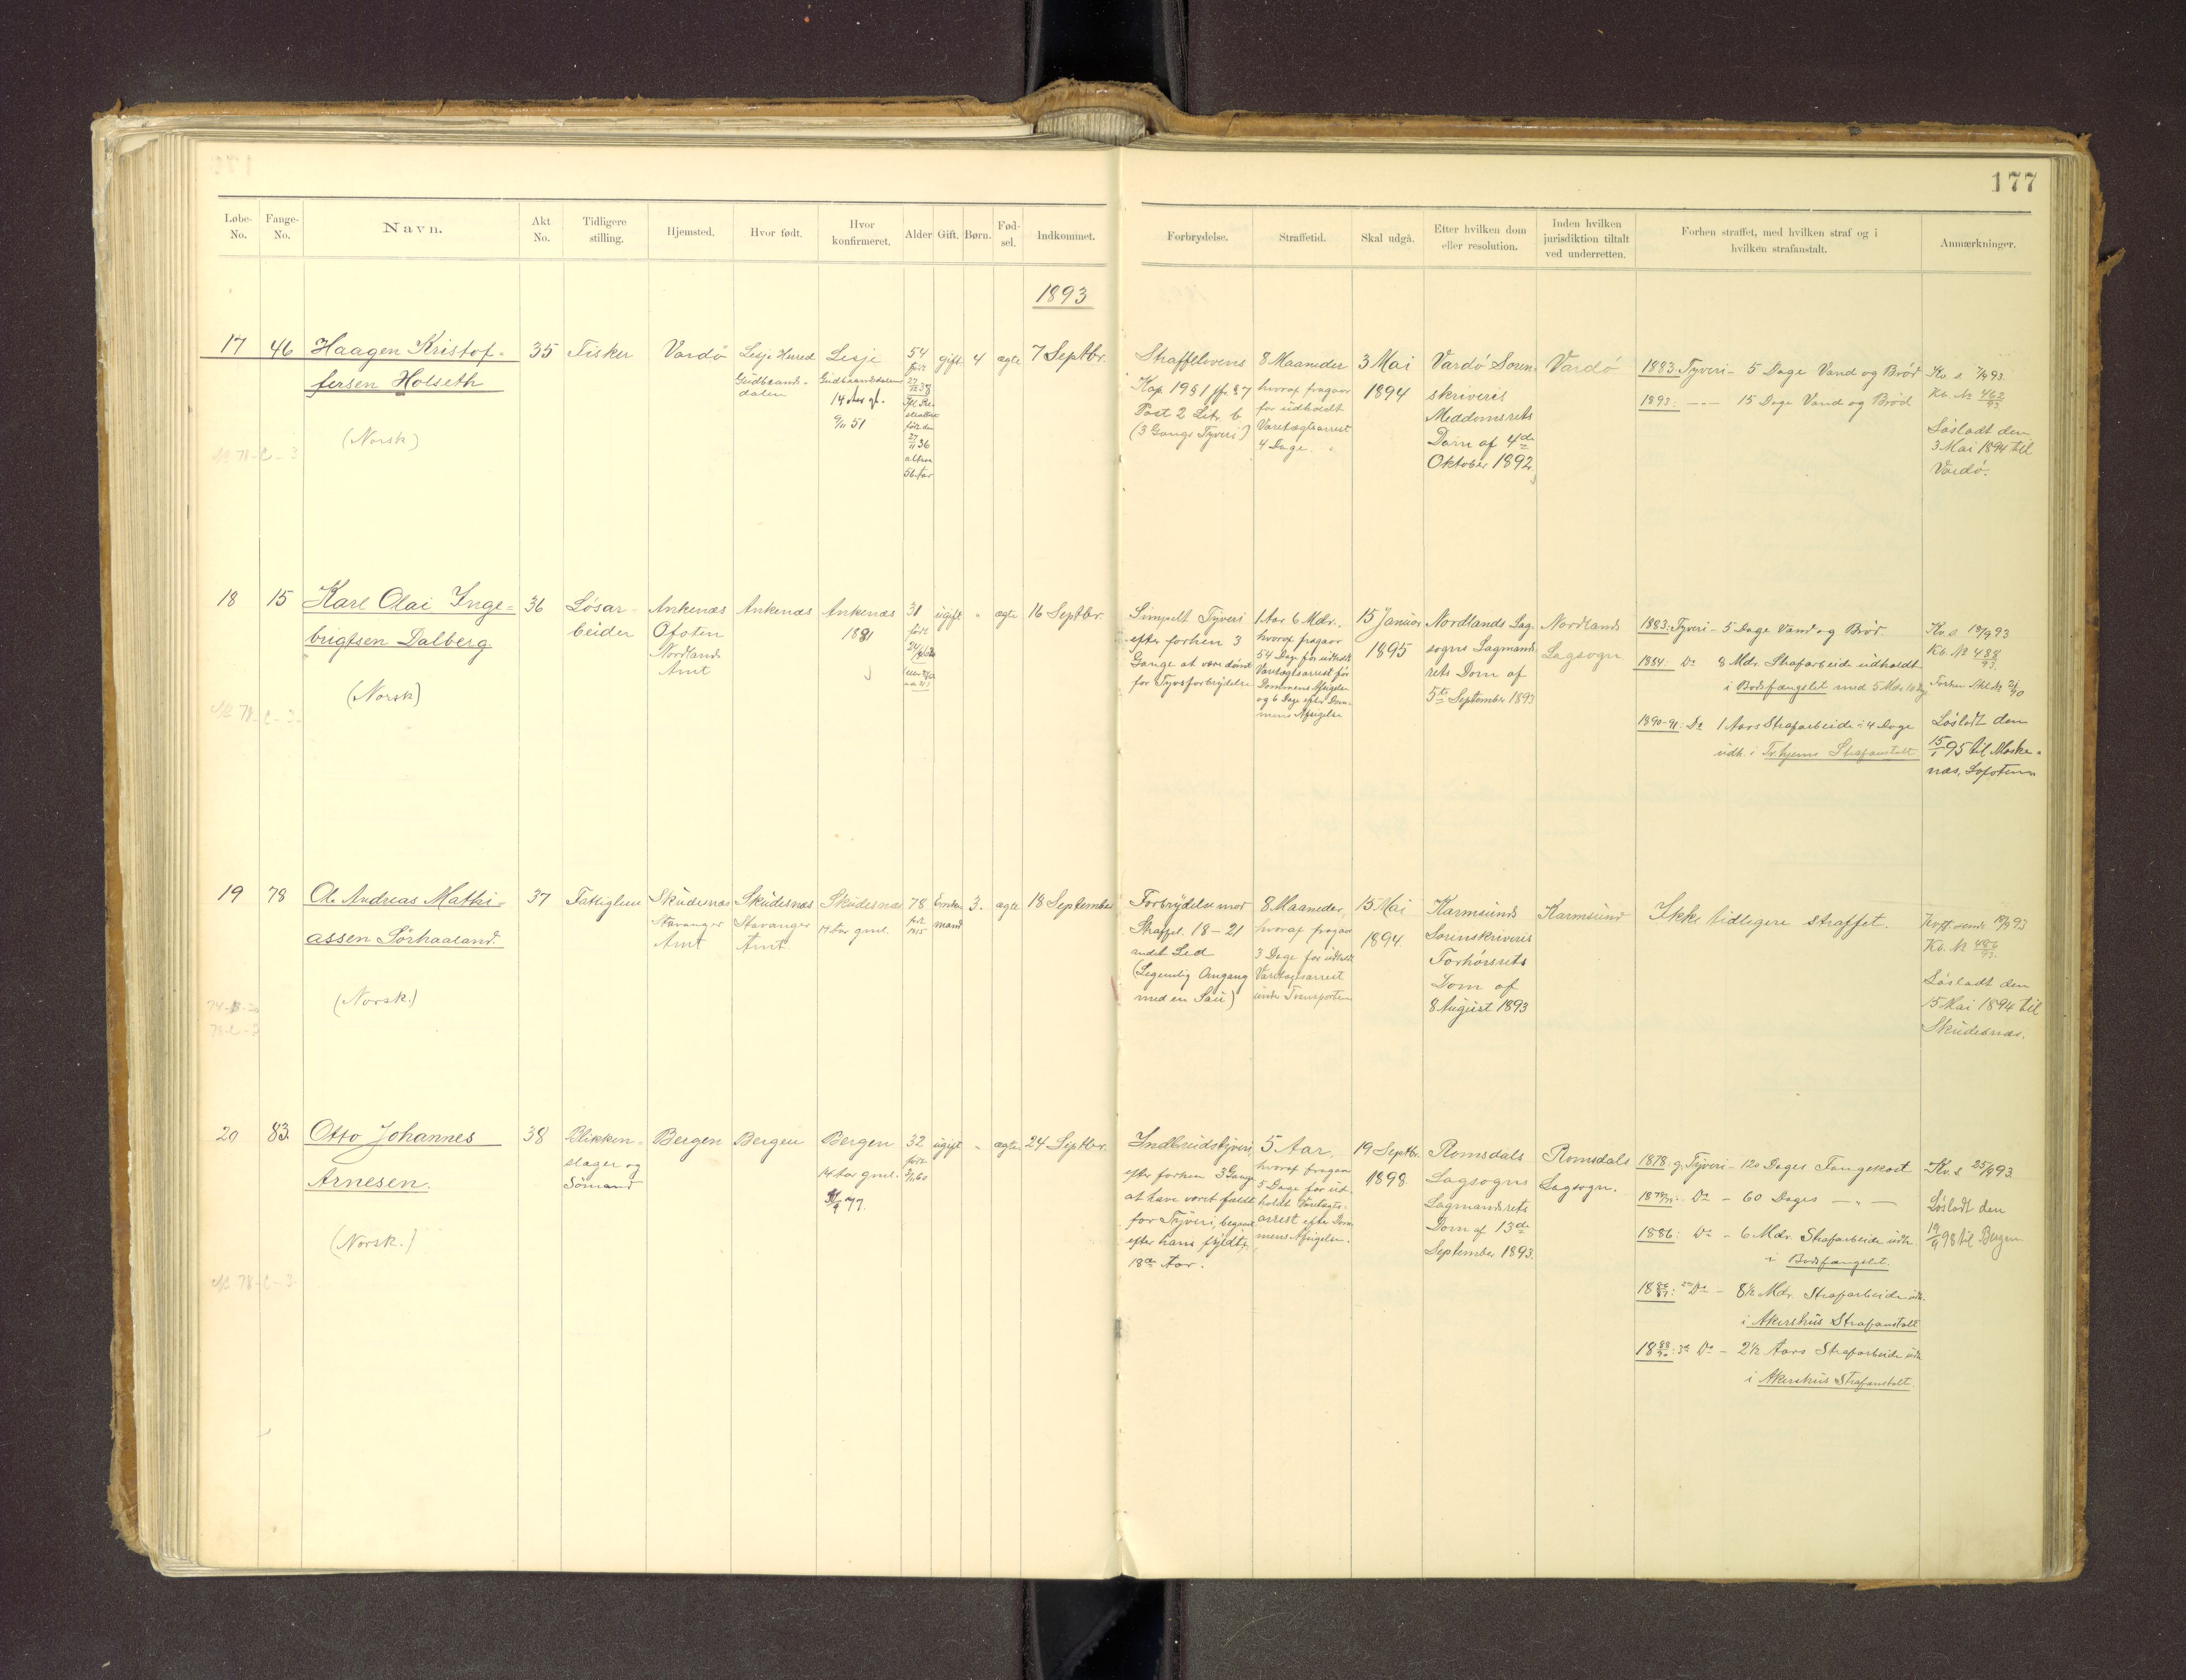 177
Løbe-No.
Fange-No.
Navn.
Akt No.
Tidligere stilling.
Hjemsted.
Hvor født.
Hvor konfirmeret.
Alder
Gift.
Børn.
Fød-sel.
Indkommet.
Forbrydelse.
Straffetid.
Skal udgå.
Efter hvilken dom eller resolution.
Inden hvilken jurisdiktion tiltalt ved underretten.
Forhen straffet, med hvilken straf og i hvilken strafanstalt.
Anmærkninger.
1893
17
46
Haagen Kristof-
fersen Holseth
(Norsk)
35
Fisker
Vardö
Lesje Herred
Gudbrands-
dalen
Lesje
Gudbrandsdalen
14 Aar gl.
9/11 51
54
født
27/12 38
født den
27/11 36
altsaa
56 Aar
gift
4
ægte
7 Septbr.
Straffelovens
Kap 19 § 1 jfr. § 7
Post 2 Litr. b
(3 Gangs Tyveri)
8 Maaneder
hvoraf fragaar
for udholdt
Varetægtsarrest
4 Dage.
3 Mai
1894
Vardö Soren-
skriveris
Meddomsrets
Dom af 4de
Oktober 1892
Vardö
1883: Tyveri - 5 Dage Vand og Bröd
1893: - " - 15 Dage Vand og Brød
Kv. s. 7/9 93.
Kb. № 462/93
Løsladt den
3 Mai 1894 til
Vardö.
18
15
Karl Olai Inge-
brigtsen Dalberg
(Norsk)
36
Løsar-
beider
Ankenæs
Ofoten
Nordlands
Amt
Ankenæs
Ankenæs
1881
31
født
ugift
"
ægte
16 Septbr.
Simpelt Tyveri
efter forhen 3
Gange at være dömt
for Tyvsforbrydelse
1 Aar 6 Mdr.,
hvoraf fragaar
54 Dage for udholdt
Varetægtsarrest før
Dommens Afsigelse
og 6 Dage efter Dom-
mens Afsigelse
15 Januar
1895
Nordlands Lag-
sogns Lagmands-
rets Dom af
5te September 1893
Nordlands
Lagsogn
1883: Tyveri - 5 Dage Vand og Brød.
1884: Do 8 Mdr. Strafarbeide udholdt
i Bodsfængslet med 5 Mdr. 10 Dg
1890-91: Do 1 Aars Strafarbeide ÷ 4 Dage
udh. i Tr.hjems Strafanstalt
Kv. s. 18/9 93
Kb. № 488/93.
Løsladt den
15/1 95 til Moske-
næs, Lofoten
19
78
Ole Andreas Mathi-
assen Sörhaaland.
(Norsk.)
37
Fattiglem
Skudenæs
Stavanger
Amt
Skudesnæs
Stavanger
Amt
Skudesnæs
17 Aar gml.
78
født
1815
Enke-
mand
3.
ægte
18 September
Forbrydelse mod
Straffel. 18-21
andet Led
(Legemlig Omgang
med en Sau)
8 Maaneder,
hvoraf fragaar
3 Dage for udholdt
Varetægtsarrest
under Transporten
15 Mai
1894.
Karmsunds
Sorenskriveris
Forhörsrets
Dom af
8 August 1893
Karmsund
Ikke tidligere straffet.
Kb. № 486/93.
Løsladt den
15 Mai 1894 til
Skudesnæs.
20
83.
Otto Johannes
Arnesen.
(Norsk.)
38
Blikken-
slager og
Sömand
Bergen
Bergen
Bergen
14 Aar gml.
32
født
ugift
"
ægte
24 Septbr.
Indbrudstyveri,
efter forhen 3 Gange
at have været fældt
for Tyveri, begaaet
efter hans fyldte
18de Aar.
5 Aar,
hvoraf fragaar
5 Dage for ud-
holdt Varetægts-
arrest efter Dom-
mens Afsigelse.
19 Septbr.
1898
Romsdals
Lagsogns
Lagmandsrets
Dom af 13de
September 1893.
Romsdals
Lagsogn.
1878: g. Tyveri - 120 Dages Fangekost
1878/79: Do - 60 Dages - " -
1886: Do - 6 Mdr. Strafarbeide udh.
i Bodsfængslet.
1886/87: 2de Do - 8½ Mdr. Strafarbeide udh.
i Akershus Strafanstalt
1888/90: 3de Do - 2½ Aars Strafarbeide udh.
i Akershus Strafanstalt.
Kv. s. 25/9 93.
Løsladt den
19/9 98 til Bergen